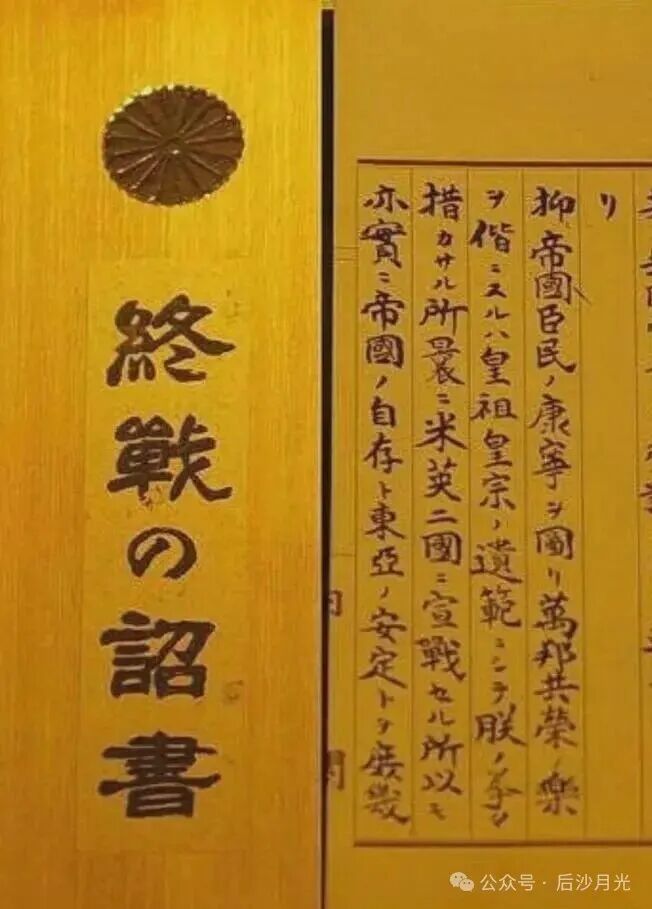 終戰の詔書
リ
抑帝國臣民ノ康寧ヲ圖リ萬邦共榮ノ樂
ヲ偕ニスルハ皇祖皇宗ノ遺範ニシテ朕ノ拳々
措カサル所曩ニ米英二國ニ宣戰セル所以モ
亦實ニ帝國ノ自存ト東亞ノ安定トヲ庶幾
公众号 · 后沙月光